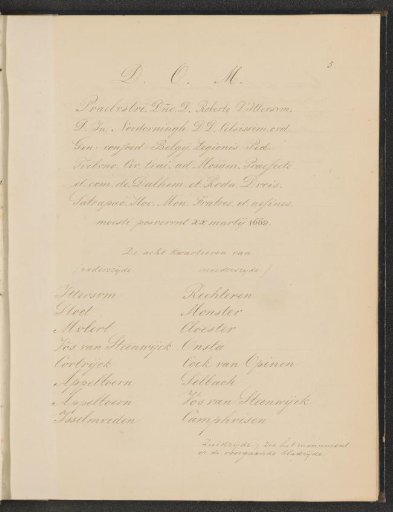 5
D. O. M.
Praelustri Dno. D. Roberto D'Ittersvm,
D. In Noordermingh D.D. Celsissm. ord.
Gen. confoed. Belgy. Legionis Ped.
Tribvno. Civ. traj. ad Mosam. Praefecto
et com. de Dalhem et Roda Dvcis.
Hoc. Mon. Fratres et affines
moesti posvervnt XX martij 1662.
De acht kwartieren van
(vaderzijde moederzijde)
Ittersvm Rechteren
Sloet Monster
Mvlert Cloester
Vos van Steenwijck Onsta
Cortrijck Cock van Opinen
Appeltoern Selbach
Appeltoern Vos van Steenwijck
Isselmveden Camphvisen
Zuidzijde; Zie het monument
op de voorgaande bladzijde.